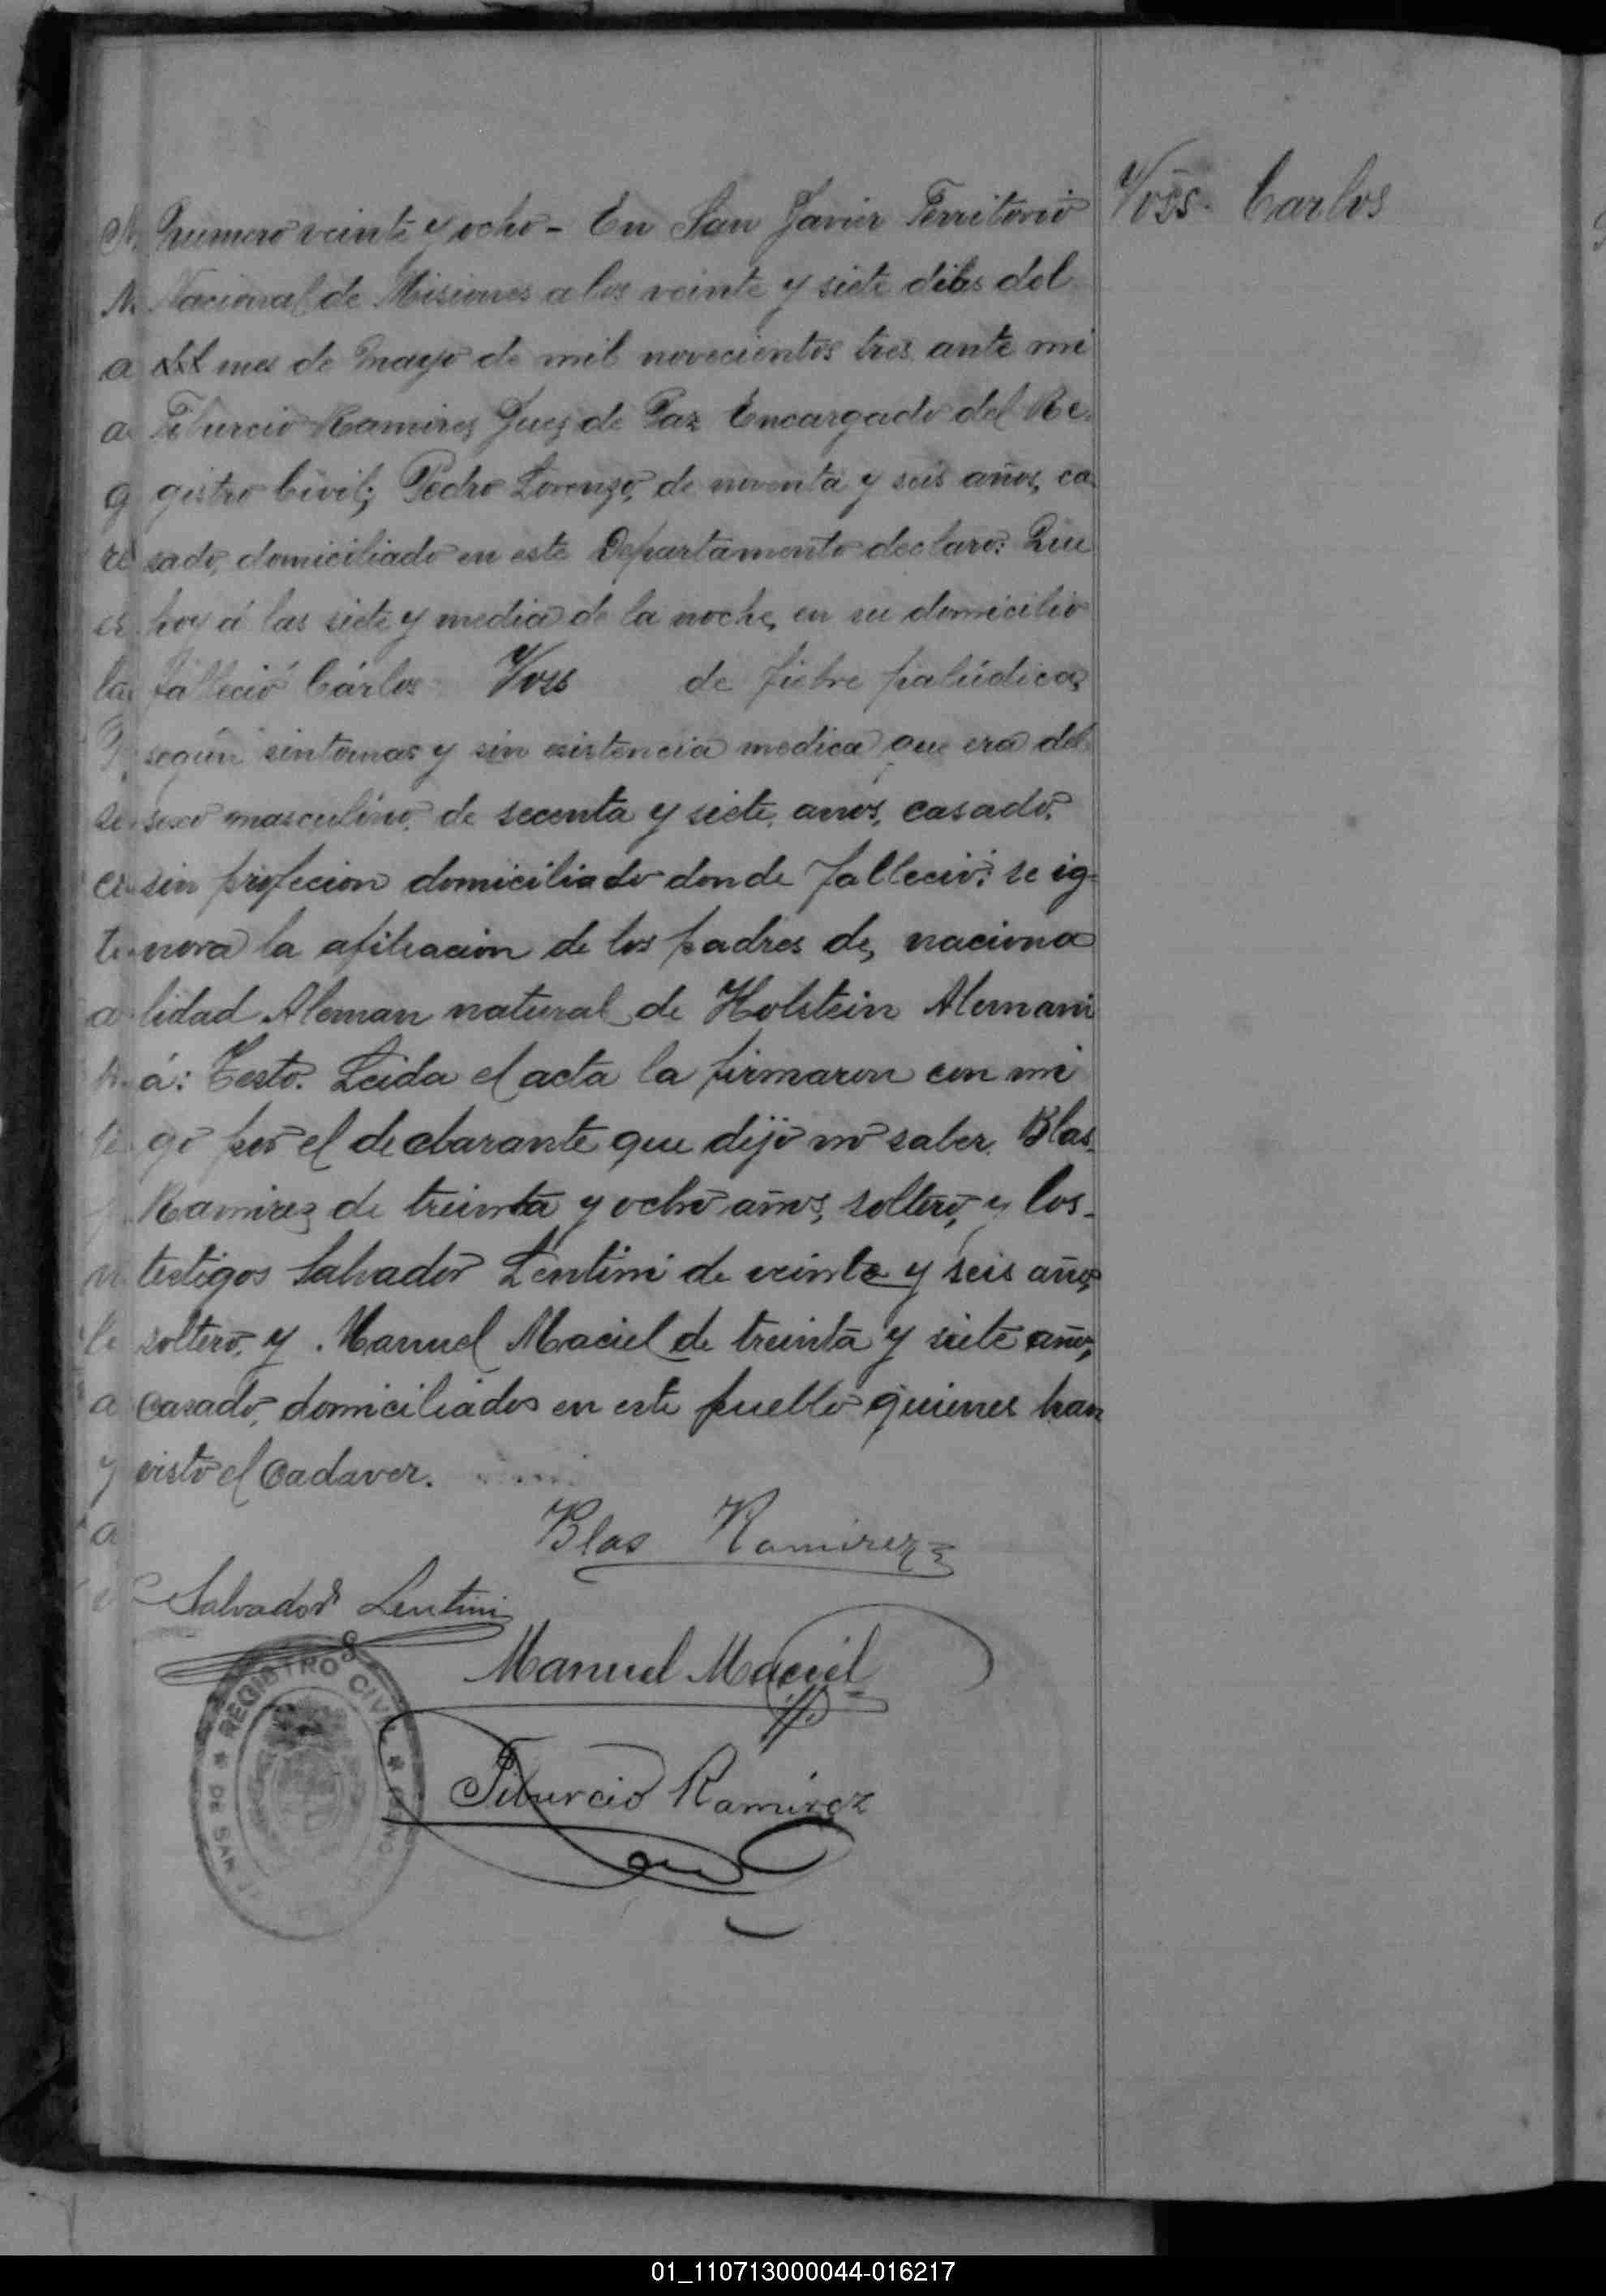 Voss Carlos
Numero veinte y ocho - En San Javier Territorio
Nacional de Misiones a los veinte y siete dias del
mes de Mayo de mil novecientos tres ante mi
Tiburcio Ramires Juez de Paz Encargado del Re-
gistro Civil; Pedro Lorenzo, de noventa y seis años, ca
sado, domiciliado en este Departamento declaro: Que
hoy á las siete y media de la noche, en su domicilio
falleció Cárlos Voss de fiebre palúdica,
según sintomas y sin asistencia medica que era del
sexo masculino, de secenta y siete, anos, casado,
sin profecion domiciliado donde fallecio: se ig-
nora la afiliacion de los padres de, naciona
lidad Aleman natural de Holstein Alemani
á: Testo. Leida el acta la firmaron con mi
go por el declarante que dijo no saber. Blas
Ramirez de treinta y ocho años, soltero, y los
testigos Salvador Lentini de veinte y seis años,
soltero, y Manuel Maciel de treinta y siete años,
casado, domiciliados en este pueblo quienes han
visto el Cadaver.
Blas Ramirez
Salvador Lentini
Manuel Maciel
Tiburcio Ramirez
REGISTRO CIVIL
DE SAN
01_110713000044-016217